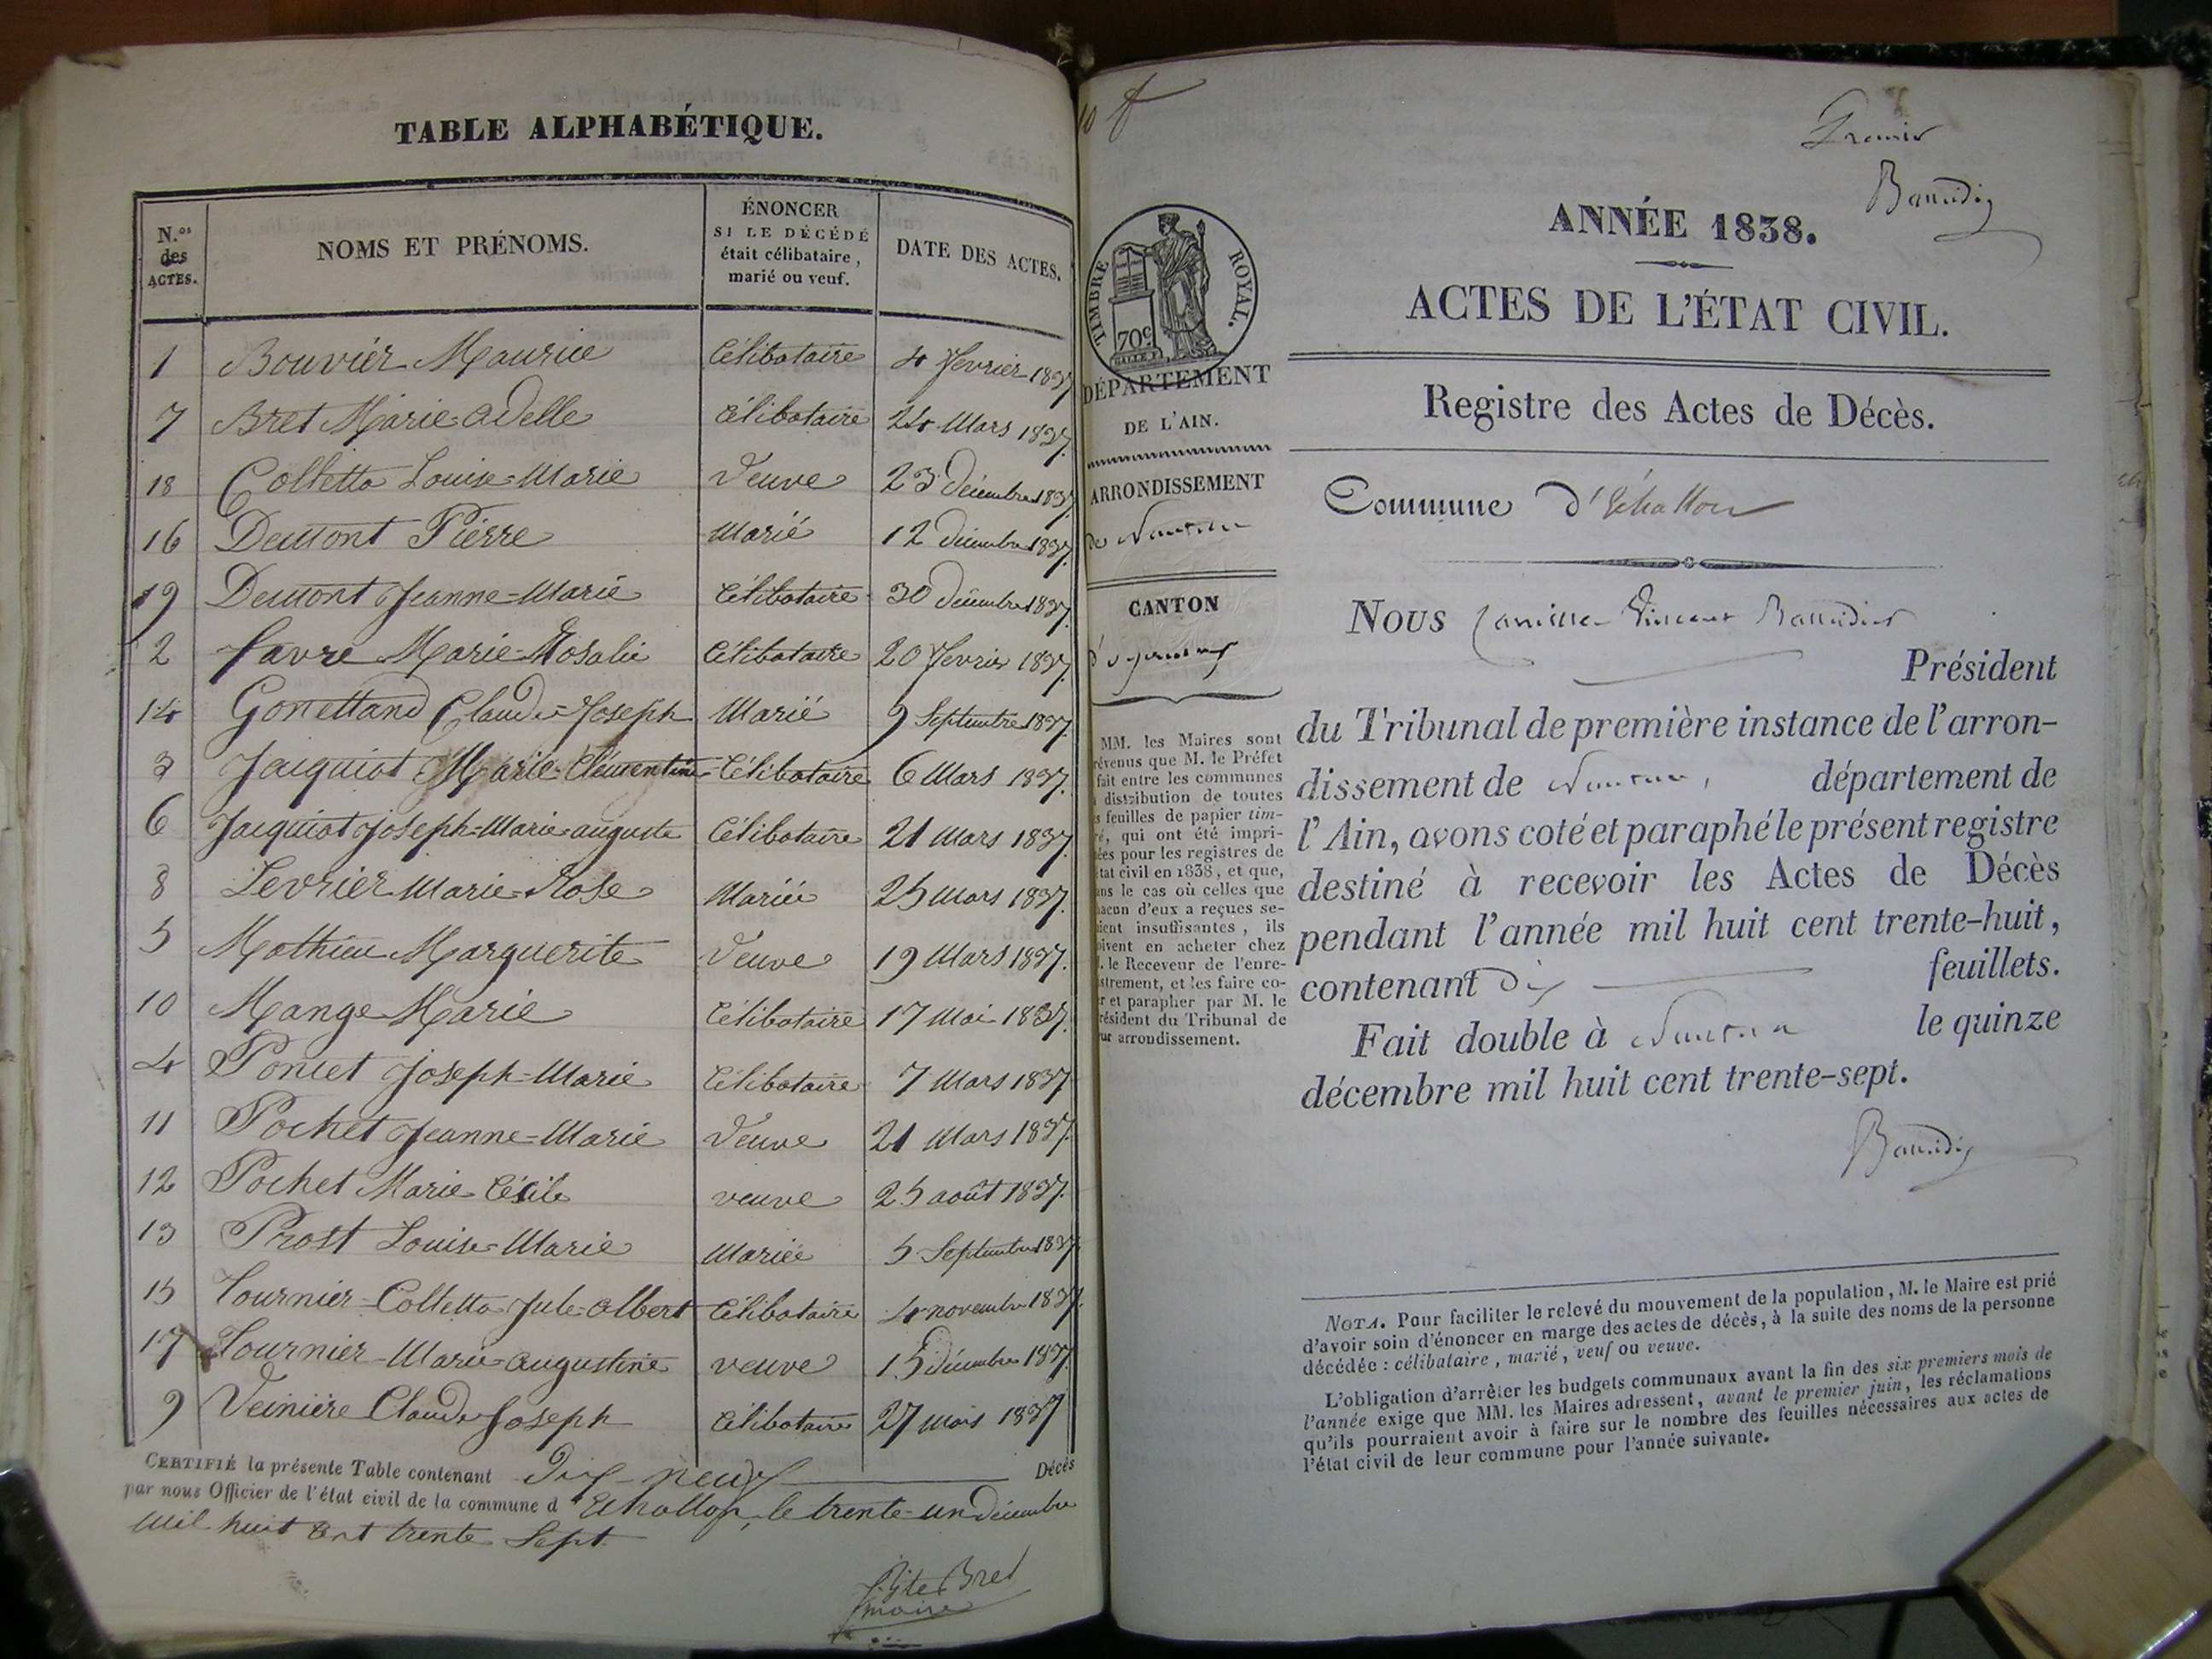 TABLE ALPHABÉTIQUE.
N.os des ACTES.
NOMS ET PRÉNOMS.
ÉNONCER
SI LE DÉCÉDÉ
était célibataire,
marié ou veuf.
DATE DES ACTES.
1 Bouvier Maurice Célibataire 4 fevrier 1837
7 Bret Marie Adelle Célibataire 24 Mars 1837.
18 Colletta Louise=Marie Veuve 23 Décembre 1837
16 Demont Pierre Marié 12 décembre 1837
19 Demont Jeanne=Marie Célibataire 30 décembre 1837
2 favre Marie-Rosalie Célibataire 20 fevrier 1837
14 Gonettand Claude=Joseph Marié 9 Septembre 1837
3 Jacquiot Marie-Clémentine Célibataire 6 Mars 1837.
6 Jacquiot joseph=Marie=auguste Célibataire 21 Mars 1837
8 Levrier Marie=Rose Mariée 25 Mars 1837
5 Mathieu Marguerite Veuve 19 Mars 1837.
10 Mange Marie Célibataire 17 Mai 1837
4 Poncet Joseph=Marie Célibataire 7 Mars 1837
11 Pochet Jeanne=Marie Veuve 21 Mars 1837.
12 Pochet Marie Cécile veuve 25 août 1837.
13 Prost Louise=Marie Mariée 5 Septembre 1837
15 Tournier=Colletta Jule=albert Célibataire 4 novembre 1837.
17 Tournier=Marie=augustine veuve 15 décembre 1837
9 Veinière Claude Joseph Célibataire 27 mars 1837
CERTIFIÉ la présente Table contenant Dix-neuf Décès
par nous Officier de l'état civil de la commune d'Echallon, le trente-un décembre
mil huit Cent trente Sept.
Bret
maire
10
Premier
Baudier
TIMBRE ROYAL.
70c
DÉPARTEMENT
DE L'AIN.
ARRONDISSEMENT
de Nantua
CANTON
d'oyonnax
MM. les Maires sont
révenus que M. le Préfet
fait entre les communes
distribution de toutes
s feuilles de papier tim-
ré, qui ont été impri-
ées pour les registres de
tat civil en 1838, et que,
ans le cas où celles que
hacun d'eux a reçues se-
ient insuffisantes, ils
oivent en acheter chez
. le Receveur de l'enre-
strement, et les faire co-
r et parapher par M. le
résident du Tribunal de
ur arrondissement.
ANNÉE 1838.
ACTES DE L'ÉTAT CIVIL.
Registre des Actes de Décès.
Commune d'Echallon
Nous Camille Vincent Baudier
Président
du Tribunal de première instance de l'arron-
dissement de Nantua, département de
l'Ain, avons coté et paraphé le présent registre
destiné à recevoir les Actes de Décès
pendant l'année mil huit cent trente-huit,
contenant dix feuillets.
Fait double à Nantua le quinze
décembre mil huit cent trente-sept.
Baudier
NOTA. Pour faciliter le relevé du mouvement de la population, M. le Maire est prié
d'avoir soin d'énoncer en marge des actes de décès, à la suite des noms de la personne
décédée : célibataire, marié, veuf ou veuve.
L'obligation d'arrêter les budgets communaux avant la fin des six premiers mois de
l'année exige que MM. les Maires adressent, avant le premier juin, les réclamations
qu'ils pourraient avoir à faire sur le nombre des feuilles nécessaires aux actes de
l'état civil de leur commune pour l'année suivante.